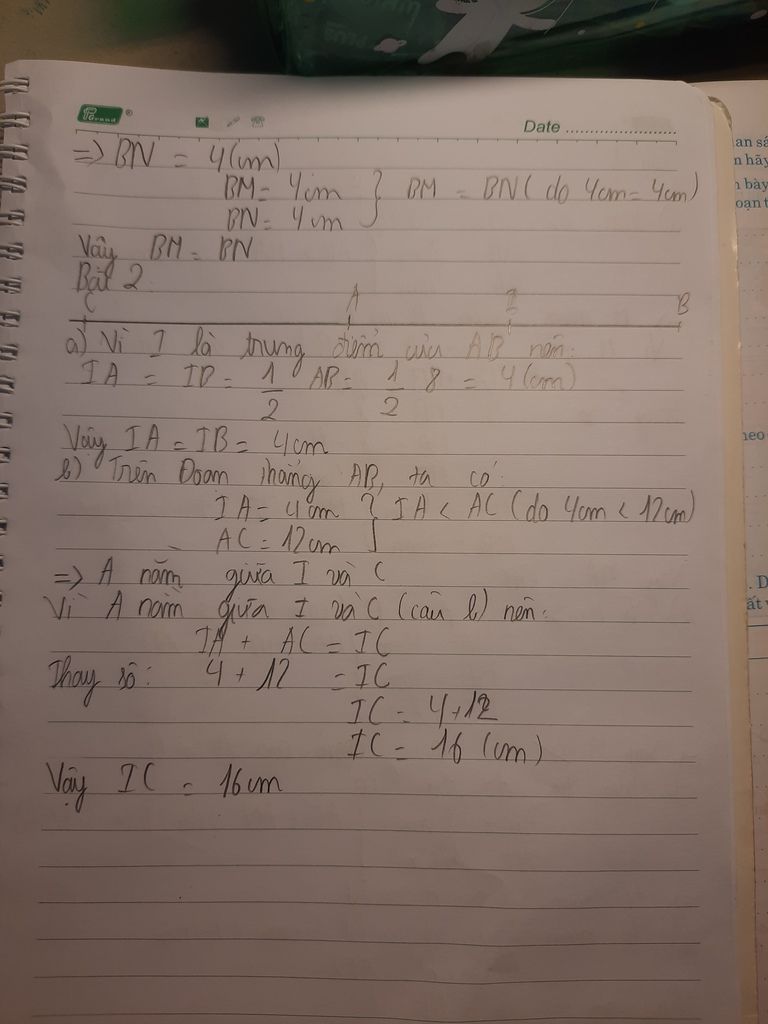 Date
=> BN = 4(cm)
BM = 4cm } BM = BN ( do 4cm = 4cm)
BN = 4cm
Vậy BM = BN
Bài 2
C A I B
a) Vì I là trung điểm của AB nên:
IA = IB = 1/2 AB = 1/2 8 = 4(cm)
Vậy IA = IB = 4cm
b) Trên Đoạn thẳng AB, ta có:
IA = 4cm } IA < AC (do 4cm < 12cm)
AC = 12cm
=> A nằm giữa I và C
Vì A nằm giữa I và C (câu b) nên:
IA + AC = IC
Thay số: 4 + 12 = IC
IC = 4+12
IC = 16 (cm)
Vậy IC = 16cm